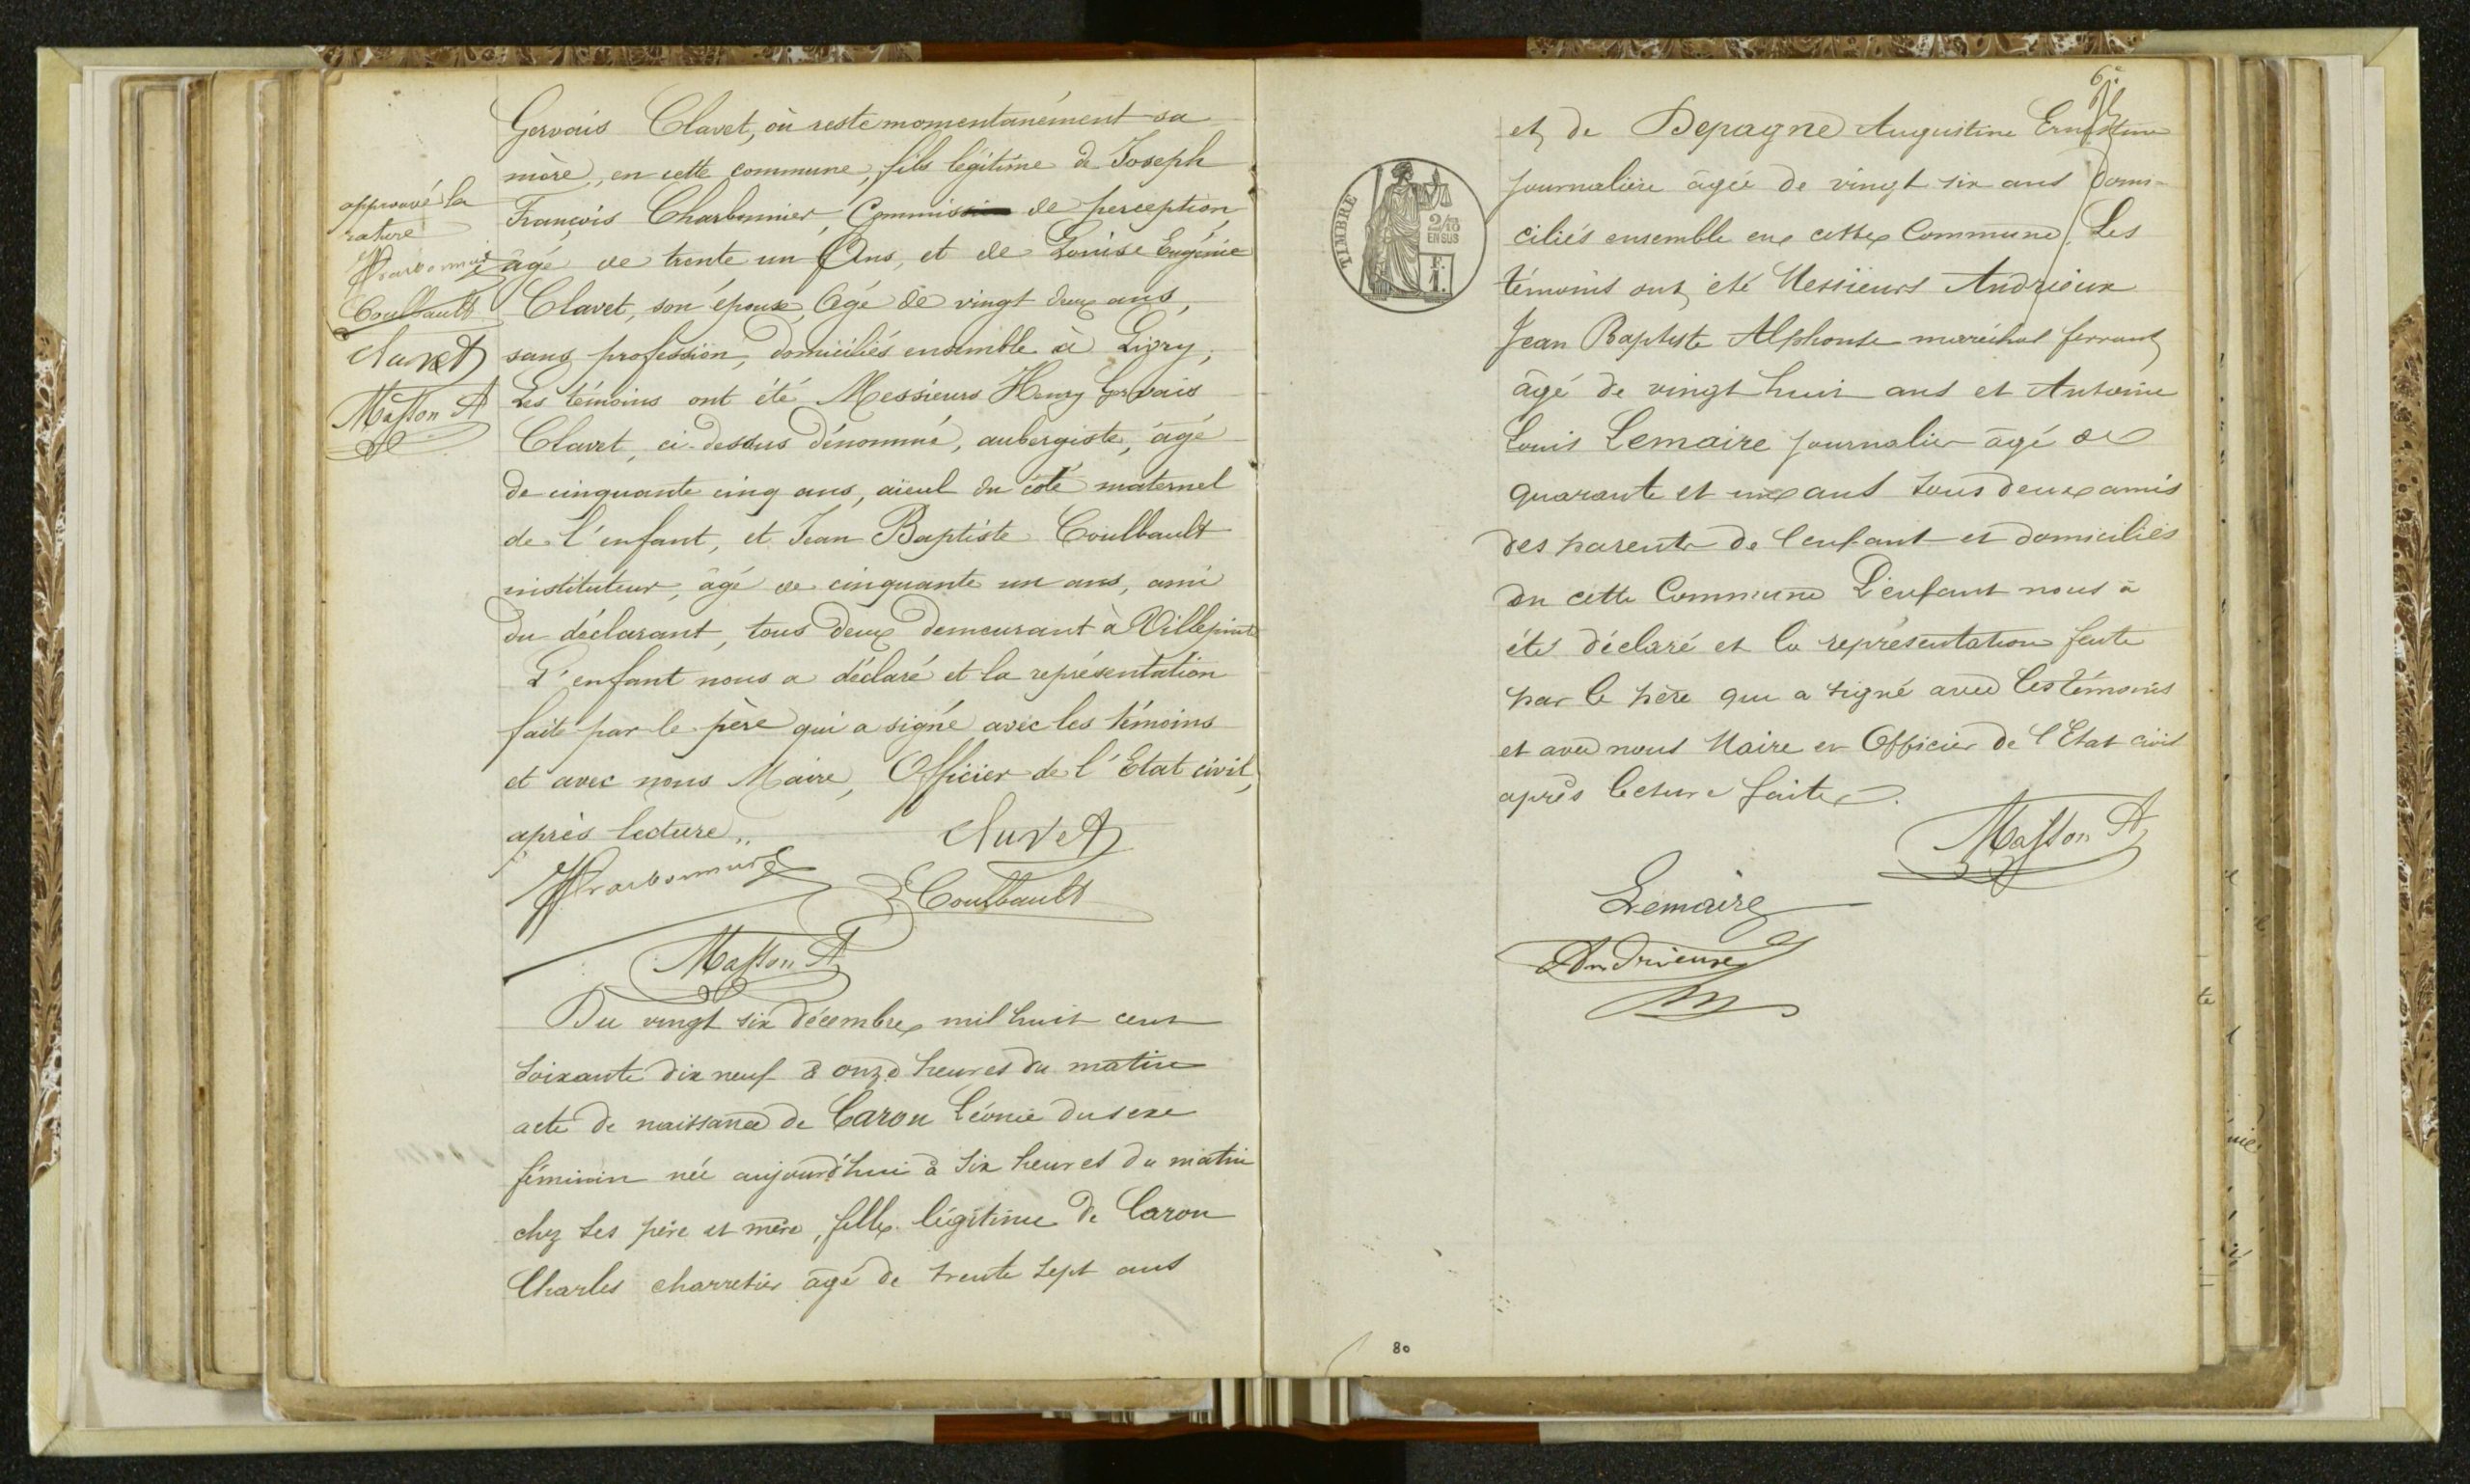 Gervais Clavet, où reste momentanément sa
mère, en cette commune, fils légitime de Joseph
François Charbonnier, Commis de perception,
âgé de trente un Ans, et de Louise Eugénie
Clavet, son épouse, âgé de vingt deux ans,
sans profession, domiciliés ensemble à Livry,
Les témoins ont été Messieurs Henry Gervais
Clavet, ci-dessus dénommé, aubergiste, âgé
de cinquante cinq ans, aïeul du côté maternel
de l'enfant, et Jean Baptiste Coulbault
instituteur, âgé de cinquante un ans, ami
du déclarant, tous deux demeurant à Villepinte
L'enfant nous a déclaré et la représentation
faite par le père qui a signé avec les témoins
et avec nous Maire, Officier de l'Etat civil,
après lecture,,
approuvé la
rature
Charbonnier
Coulbault
Clavet
Masson A
Clavet
Charbonnier
Coulbault
Masson A
Du vingt six décembre mil huit cent
soixante dix neuf à onze heures du matin
acte de naissance de Caron Léonie du sexe
féminin née aujourd'hui à six heures du matin
chez ses père et mère, fille légitime de Caron
Charles charretier âgé de trente sept ans
6e
et de Depagne Augustine Ernestine
journalière âgée de vingt six ans domi-
ciliés ensemble en cette Commune, Les
témoins ont été Messieurs Andrieux
Jean Baptiste Alphonse maréchal ferrant
âgé de vingt huit ans et Antoine
Louis Lemaire journalier âgé de
quarante et un ans tous deux amis
des parents de l'enfant et domiciliés
en cette Commune L'enfant nous à
été déclaré et la représentation faite
par le père qui a signé avec les témoins
et avec nous Maire et Officier de l'Etat civil
après lecture faite.
TIMBRE
2/10
EN SUS
F.
1.
Masson A
Lemaire
Andrieux
80
te